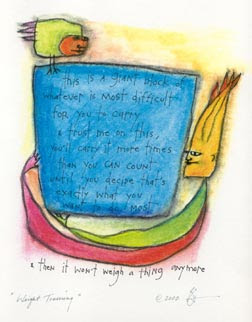 this is a giant block of
whatever is most difficult
for you to carry
& trust me on this,
you'll carry it more times
than you can count
until you decide that's
exactly what you
want to do most
& then it won't weigh a thing anymore
"Weight Training"
© 2000